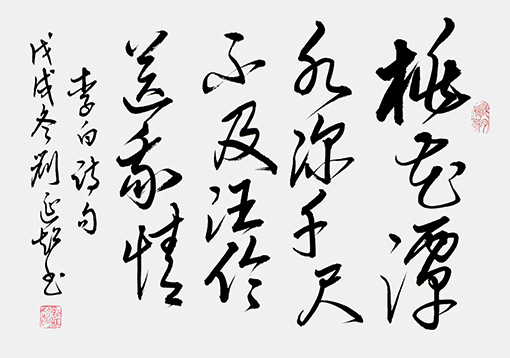 桃花潭
水深千尺
不及汪伦
送我情
李白诗句
戊戌冬刘延超书